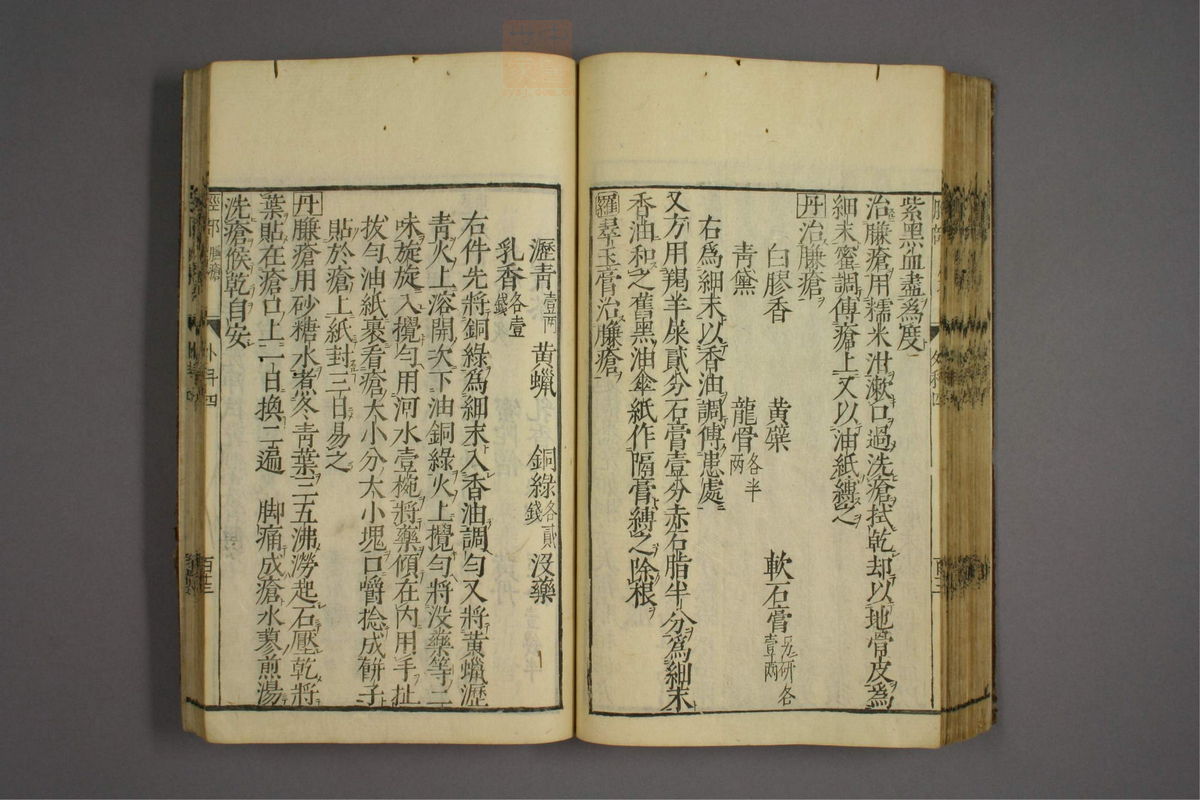 紫黑血盡爲度
治臁瘡用糯米泔漱口過洗瘡拭乾却以地骨皮爲
細末蜜調傅瘡上又以油紙縛之
丹治臁瘡
白膠香 黃蘗 軟石膏另研各壹兩
青黛 龍骨各半兩
右爲細末以香油調傅患處
又方用羯羊屎貳分石膏壹分赤石脂半分爲細末
香油和之舊黑油傘紙作隔膏縛之除根
羅翠玉膏治臁瘡
瀝青壹兩 黃蠟 銅綠各貳錢 沒藥
乳香各壹錢
右件先將銅綠爲細末入香油調勻又將黃蠟瀝
青火上溶開次下油銅綠火上攪勻將沒藥等二
味旋旋入攪勻用河水壹椀將藥傾在內用手扯
拔勻油紙裹看瘡大小分大小塊口嚼捻成餠子
貼於瘡上紙封三日易之
丹臁瘡用砂糖水煮冬青葉三五沸澇起石壓乾將
葉貼在瘡口上一日換二遍 脚痛成瘡水蓼煎湯
洗瘡候乾自安
脛部 臁瘡 外科四 百廿三